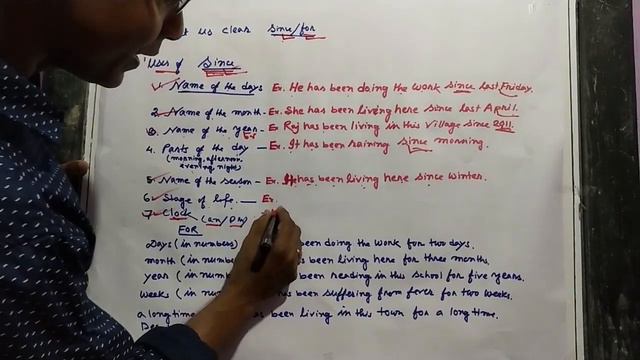 t us clear Since/for
Uses of Since
1. Name of the days Ex. He has been doing the work since last Friday.
2. Name of the month - Ex. She has been living here since last April.
3. Name of the year - Ex Raj has been living in this village since 2011.
4. Parts of the day - Ex. It has been raining since morning.
(morning, afternoon,
evening, night)
5. Name of the season - Ex. It has been living here since winter.
6. Stage of life. — Ex.
7. Clock (am/pm)
FOR
Days (in numbers) been doing the work for two days.
month (in number been living here for three months.
year (in numb been reading in this school for five years.
weeks (in nu has been suffering from fever for two weeks.
a long time been living in this town for a long time.